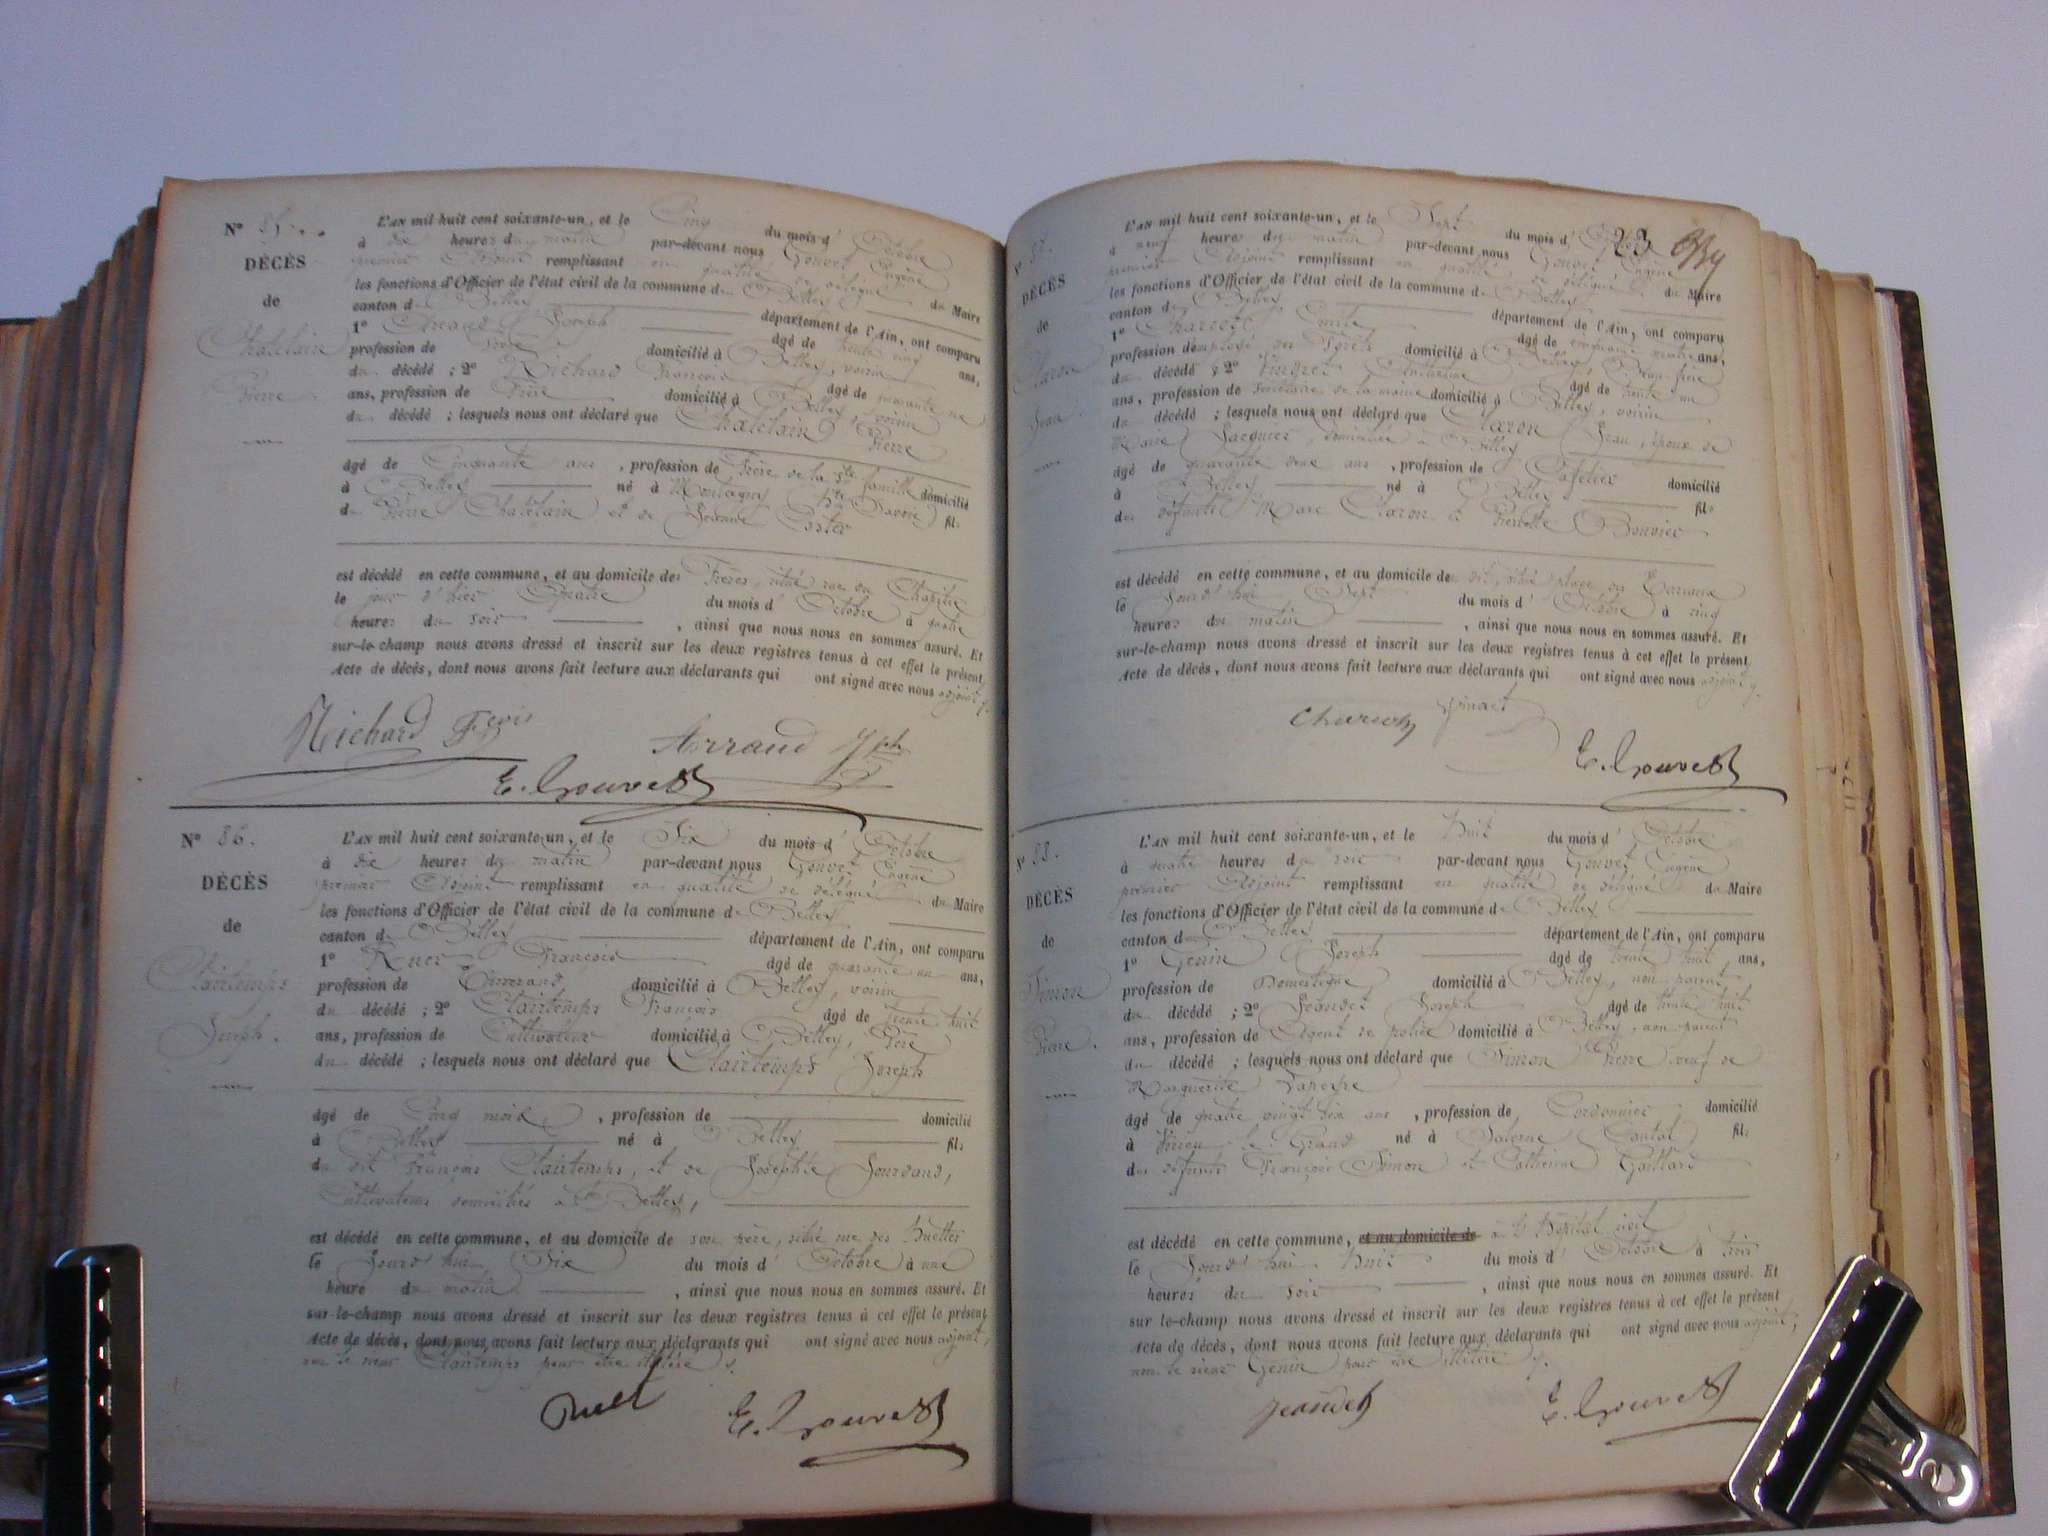 N° 85.
DÉCÈS
de
Chatelain
Pierre.
L'AN mil huit cent soixante-un, et le Cinq du mois d' Octobre
à dix heures du matin par-devant nous Gouvet Eugène
premier Adjoint remplissant en qualité de délégué du Maire
les fonctions d'Officier de l'état civil de la commune de Belley
canton de Belley département de l'Ain, ont comparu
1° Arraud Joseph âgé de trente cinq ans,
profession de Frère domicilié à Belley, voisin
du décédé ; 2° Richard François âgé de quarante
ans, profession de Frère domicilié à Belley, voisin
du décédé ; lesquels nous ont déclaré que Chatelain Pierre
âgé de Cinquante ans , profession de Frère de la Ste famille domicilié
à Belley né à Montagny Hte Savoie fils
de Pierre Chatelain et de Jeanne
est décédé en cette commune, et au domicile des Frères, situé rue du Chapitre
le jour d'hier Quatre du mois d' Octobre à quatre
heures du soir , ainsi que nous nous en sommes assuré. Et
sur-le-champ nous avons dressé et inscrit sur les deux registres tenus à cet effet le présent
Acte de décès, dont nous avons fait lecture aux déclarants qui ont signé avec nous adjoint
Richard Fçois Arraud Jph
E. Gouvet
N° 86.
DÉCÈS
de
Clairtemps
Joseph.
L'AN mil huit cent soixante-un, et le Six du mois d' Octobre
à dix heures du matin par-devant nous Gouvet Eugène
premier Adjoint remplissant en qualité de délégué du Maire
les fonctions d'Officier de l'état civil de la commune de Belley
canton de Belley département de l'Ain, ont comparu
1° François âgé de quarante un ans,
profession de domicilié à Belley, voisin
du décédé ; 2° Clairtemps François âgé de trente huit
ans, profession de Cultivateur domicilié à Belley, Père
du décédé ; lesquels nous ont déclaré que Clairtemps Joseph
âgé de Cinq mois , profession de domicilié
à Belley né à Belley fils
du dit François Clairtemps, et de Josephte Jourdand,
Cultivateurs domiciliés à Belley,
est décédé en cette commune, et au domicile de son père, situé rue des
le Jourd'hui Six du mois d' Octobre à une
heure du matin , ainsi que nous nous en sommes assuré. Et
sur-le-champ nous avons dressé et inscrit sur les deux registres tenus à cet effet le présent
Acte de décès, dont nous avons fait lecture aux déclarants qui ont signé avec nous adjoint,
non le sieur Clairtemps pour être illitéré
E. Gouvet
23
N° 87.
DÉCÈS
de
Claron
Jean.
L'AN mil huit cent soixante-un, et le Sept du mois d'
à neuf heures du matin par-devant nous Gouvet Eugène
premier Adjoint remplissant en qualité de délégué du Maire
les fonctions d'Officier de l'état civil de la commune de Belley
canton de Belley département de l'Ain, ont comparu
1° Emile âgé de cinquante quatre ans,
profession d'employé domicilié à Belley Beau frère
du décédé ; 2° âgé de trente un
ans, profession de Secrétaire de la mairie domicilié à Belley, voisin
du décédé ; lesquels nous ont déclaré que Claron Jean, époux de
Marie Jacquier, domiciliée à Belley
âgé de quarante deux ans , profession de Cafetier domicilié
à Belley né à Belley fils
des défunts Marc Claron et Pierrette Bouvier
est décédé en cette commune, et au domicile de dit, situé place du Terraux
le Jourd'hui Sept du mois d' Octobre à cinq
heures du matin , ainsi que nous nous en sommes assuré. Et
sur-le-champ nous avons dressé et inscrit sur les deux registres tenus à cet effet le présent
Acte de décès, dont nous avons fait lecture aux déclarants qui ont signé avec nous adjoint
E. Gouvet
N° 88.
DÉCÈS
de
Simon
Pierre.
L'AN mil huit cent soixante-un, et le Huit du mois d' Octobre
à quatre heures du soir par-devant nous Gouvet Eugène
premier Adjoint remplissant en qualité de délégué du Maire
les fonctions d'Officier de l'état civil de la commune de Belley
canton de Belley département de l'Ain, ont comparu
1° Genin Joseph âgé de trente huit ans,
profession de Domestique domicilié à Belley, non parent
du décédé ; 2° Jeandet Joseph âgé de trente huit
ans, profession de Agent de police domicilié à Belley, non parent
du décédé ; lesquels nous ont déclaré que Simon Pierre veuf de
Marguerite
âgé de quatre vingt dix ans , profession de Cordonnier domicilié
à Virieu le Grand né à Saterne Cantal fils
des défunts François Simon et Catherine Gaillard
est décédé en cette commune, et au domicile de à l'Hôpital civil
le Jourd'hui Huit du mois d' Octobre à trois
heures du soir , ainsi que nous nous en sommes assuré. Et
sur-le-champ nous avons dressé et inscrit sur les deux registres tenus à cet effet le présent
Acte de décès, dont nous avons fait lecture aux déclarants qui ont signé avec nous adjoint,
non le sieur Genin pour être illitéré
Jeandet E. Gouvet